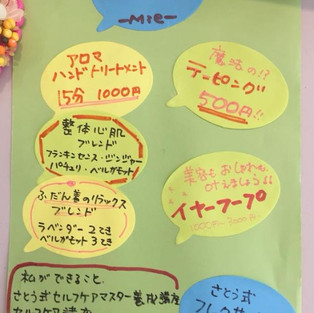 -Mie-
アロマ
ハンドトリートメント
15分 1000円
魔法の!?
テーピング
500円!!
整体心肌
ブレンド
フランキンセンス・ジンジャー
パチュリ・ベルガモット
美容も おしゃれも
叶えましょう
イヤーフープ
1000円〜3000円
ふだん着のリラックス
ブレンド
ラベンダー 2てき
ベルガモット 3てき
私ができること
さとう式セルフケアマスター養成講座
セルフケア講座
さとう式